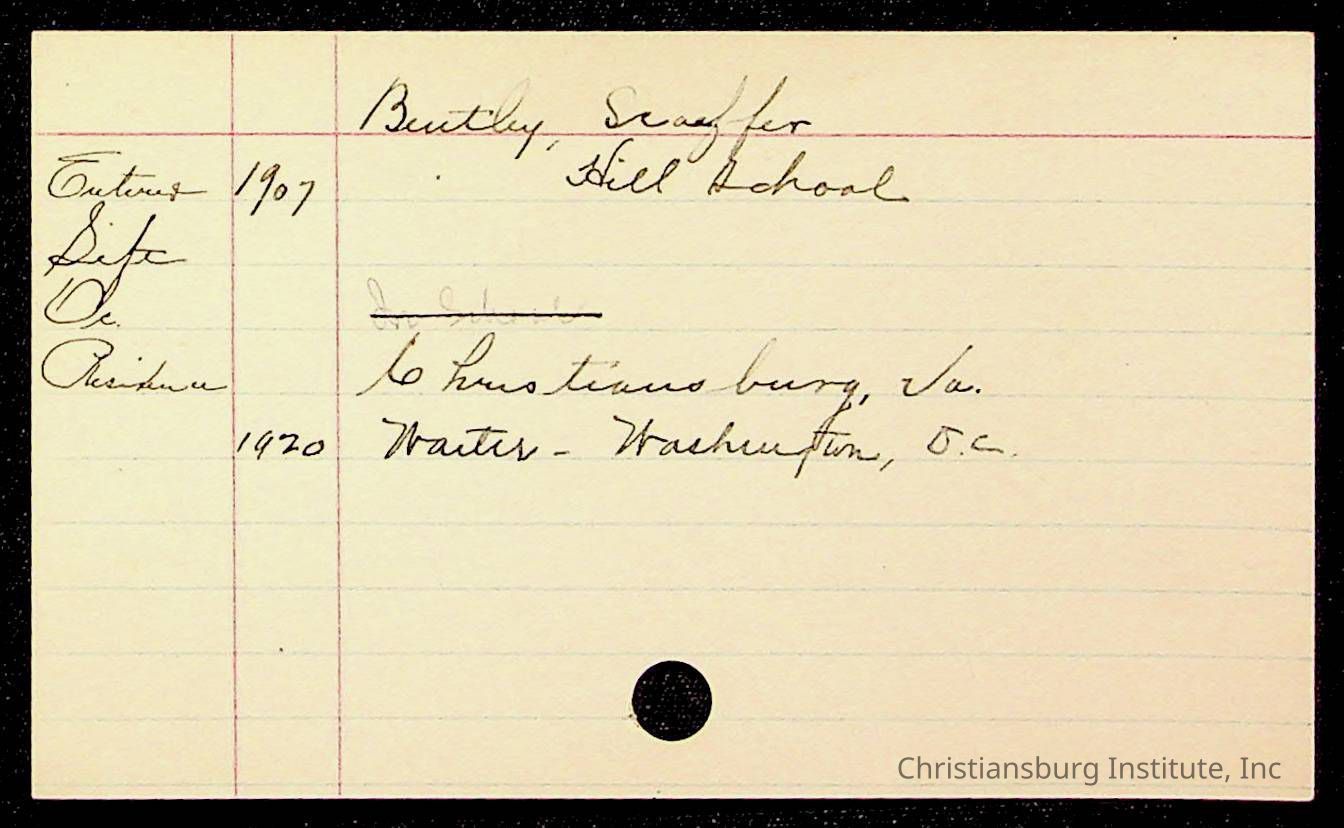 Bentley, Scaeffer
Entered 1907 Hill School
Left
Oc. In School
Residence Christiansburg, Va.
1920 Waiter - Washington, D.C.
Christiansburg Institute, Inc